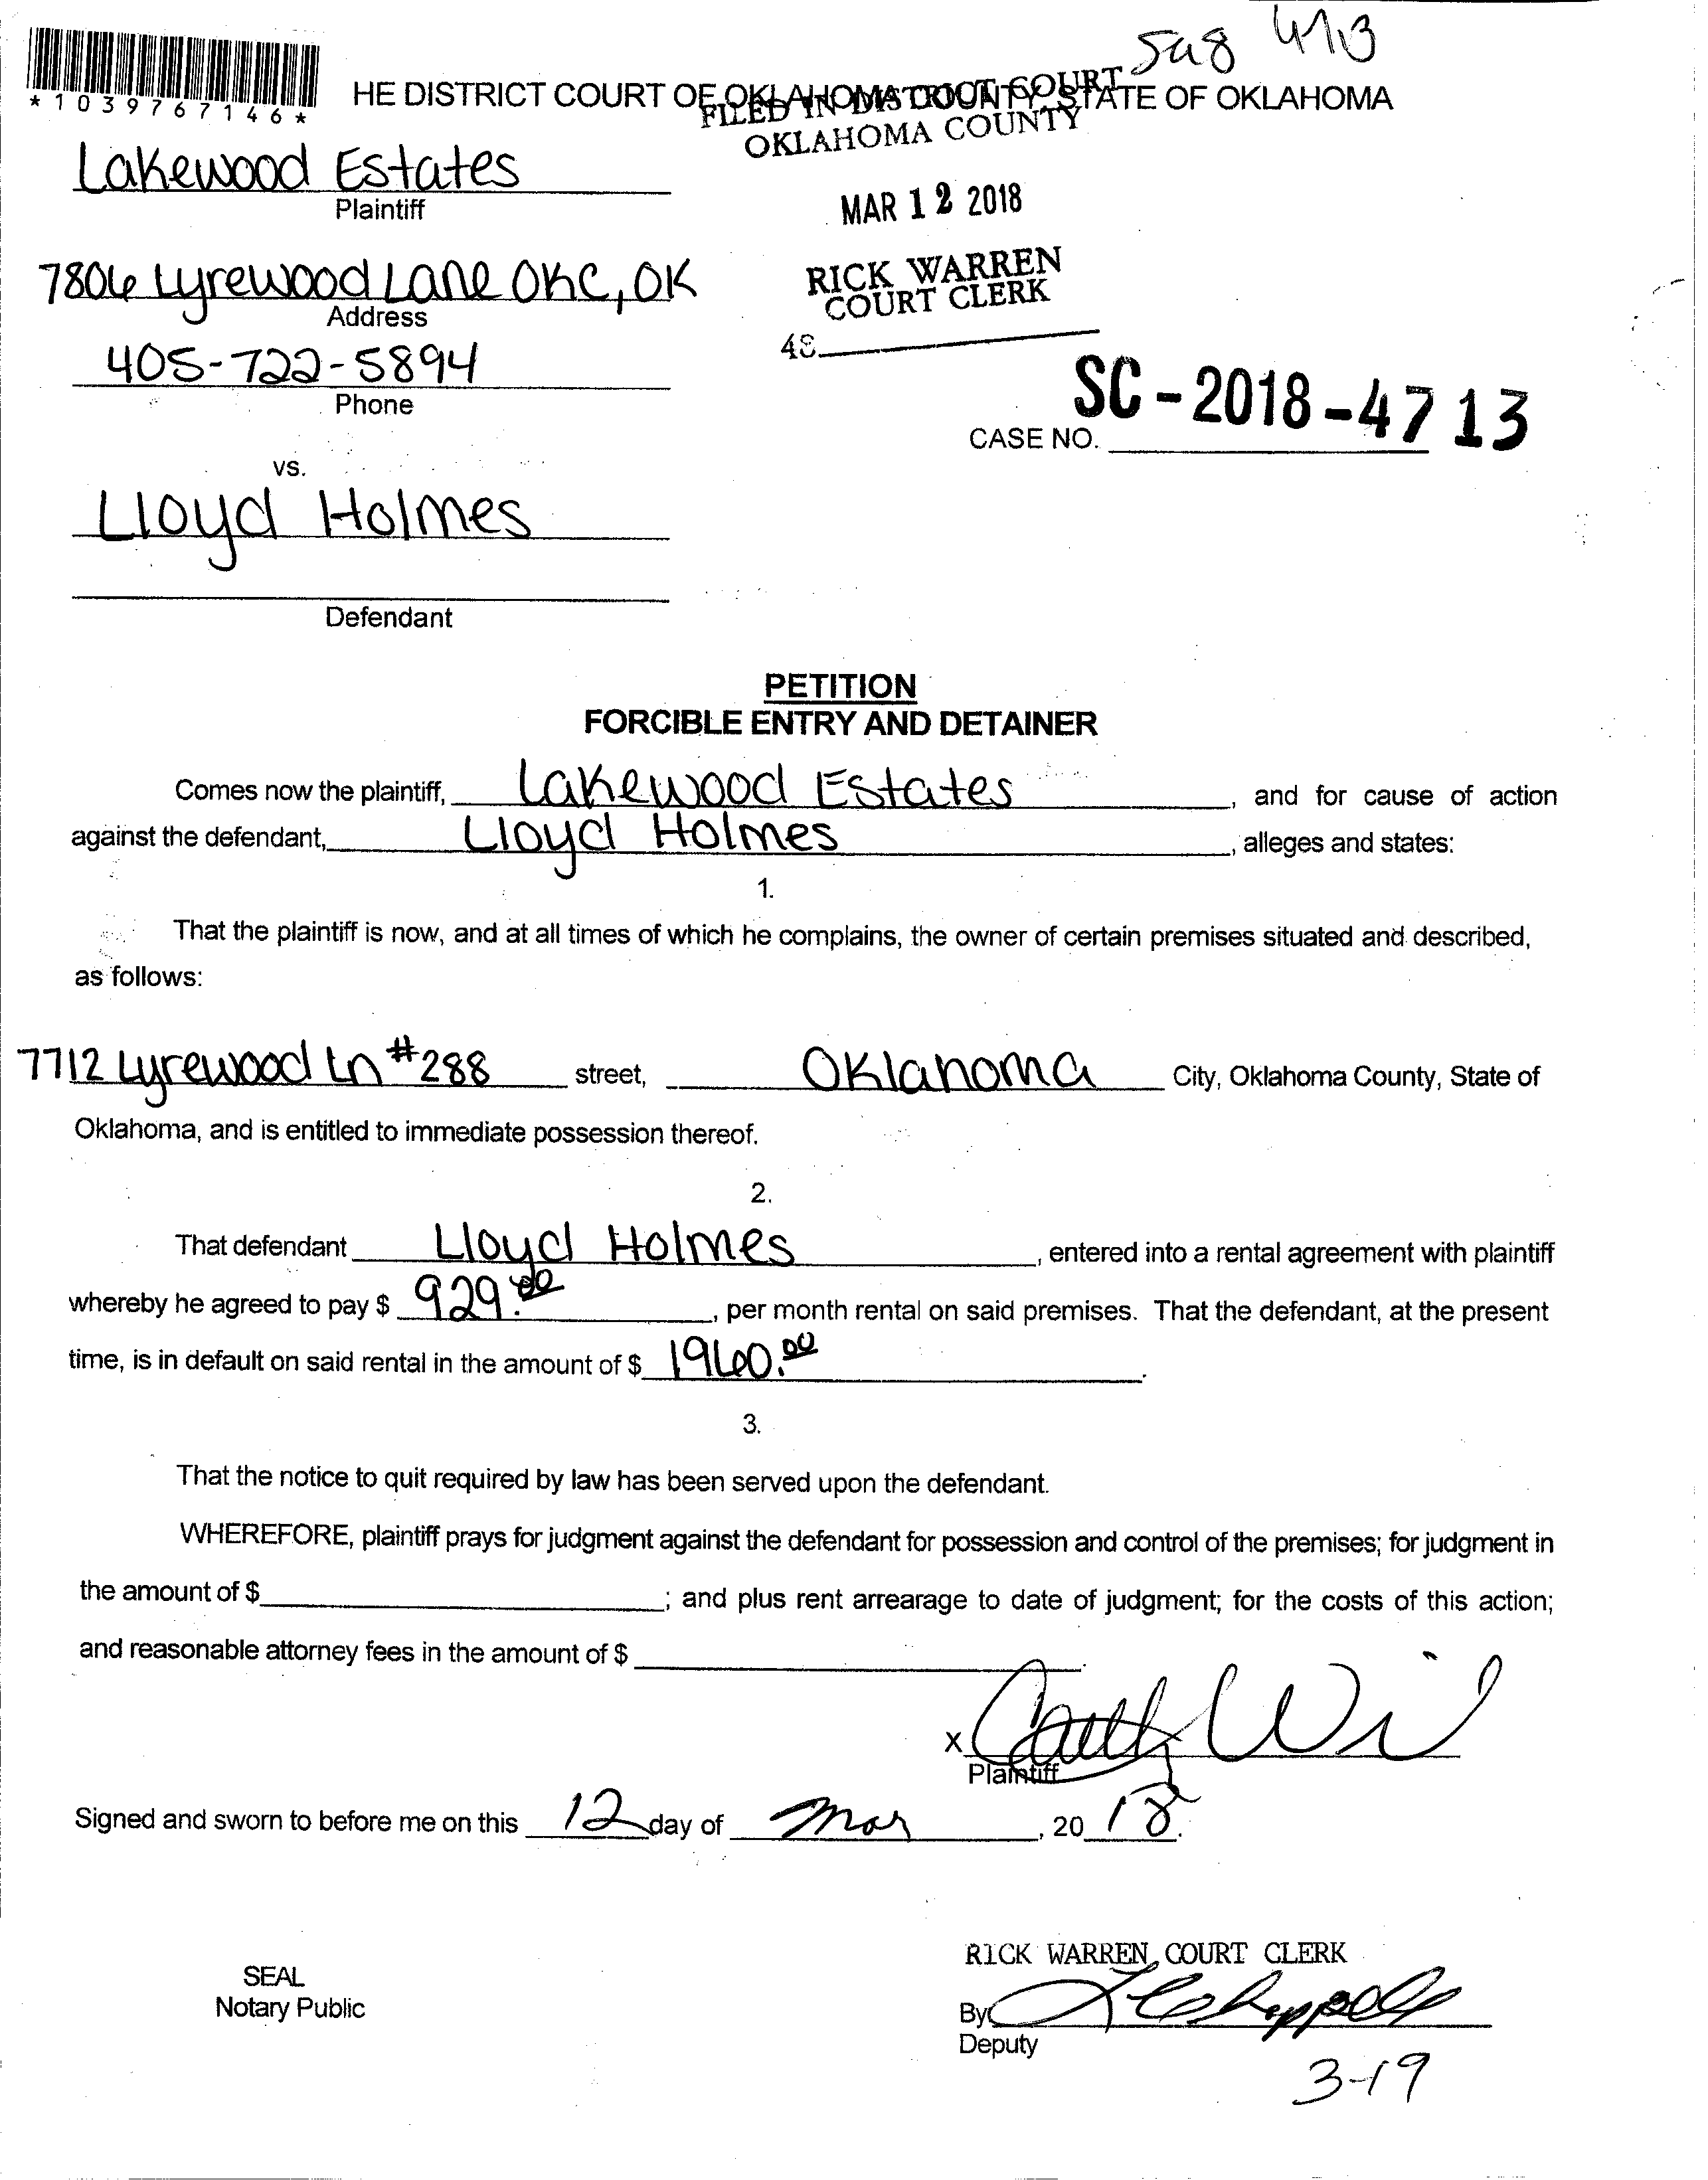 5a8 4713
*1039767146*
HE DISTRICT COURT OF OKLAHOMA COUNTY, STATE OF OKLAHOMA
FILED IN DISTRICT COURT
OKLAHOMA COUNTY
Lakewood Estates
Plaintiff
MAR 12 2018
7806 Lyrewood Lane OKC, OK
Address
RICK WARREN
COURT CLERK
405-722-5894
Phone
48
SC-2018-4713
CASE NO.
vs.
Lloyd Holmes
Defendant
PETITION
FORCIBLE ENTRY AND DETAINER
Comes now the plaintiff, Lakewood Estates, and for cause of action
against the defendant, Lloyd Holmes, alleges and states:
1.
That the plaintiff is now, and at all times of which he complains, the owner of certain premises situated and described,
as follows:
7712 Lyrewood Ln #288 street, Oklahoma City, Oklahoma County, State of
Oklahoma, and is entitled to immediate possession thereof.
2.
That defendant Lloyd Holmes, entered into a rental agreement with plaintiff
whereby he agreed to pay $ 929.00, per month rental on said premises. That the defendant, at the present
time, is in default on said rental in the amount of $ 1960.00.
3.
That the notice to quit required by law has been served upon the defendant.
WHEREFORE, plaintiff prays for judgment against the defendant for possession and control of the premises; for judgment in
the amount of $ ; and plus rent arrearage to date of judgment; for the costs of this action;
and reasonable attorney fees in the amount of $ .
X
Plaintiff
Signed and sworn to before me on this 12 day of Mar, 20 18.
RICK WARREN, COURT CLERK
SEAL
Notary Public
By
Deputy
3-19